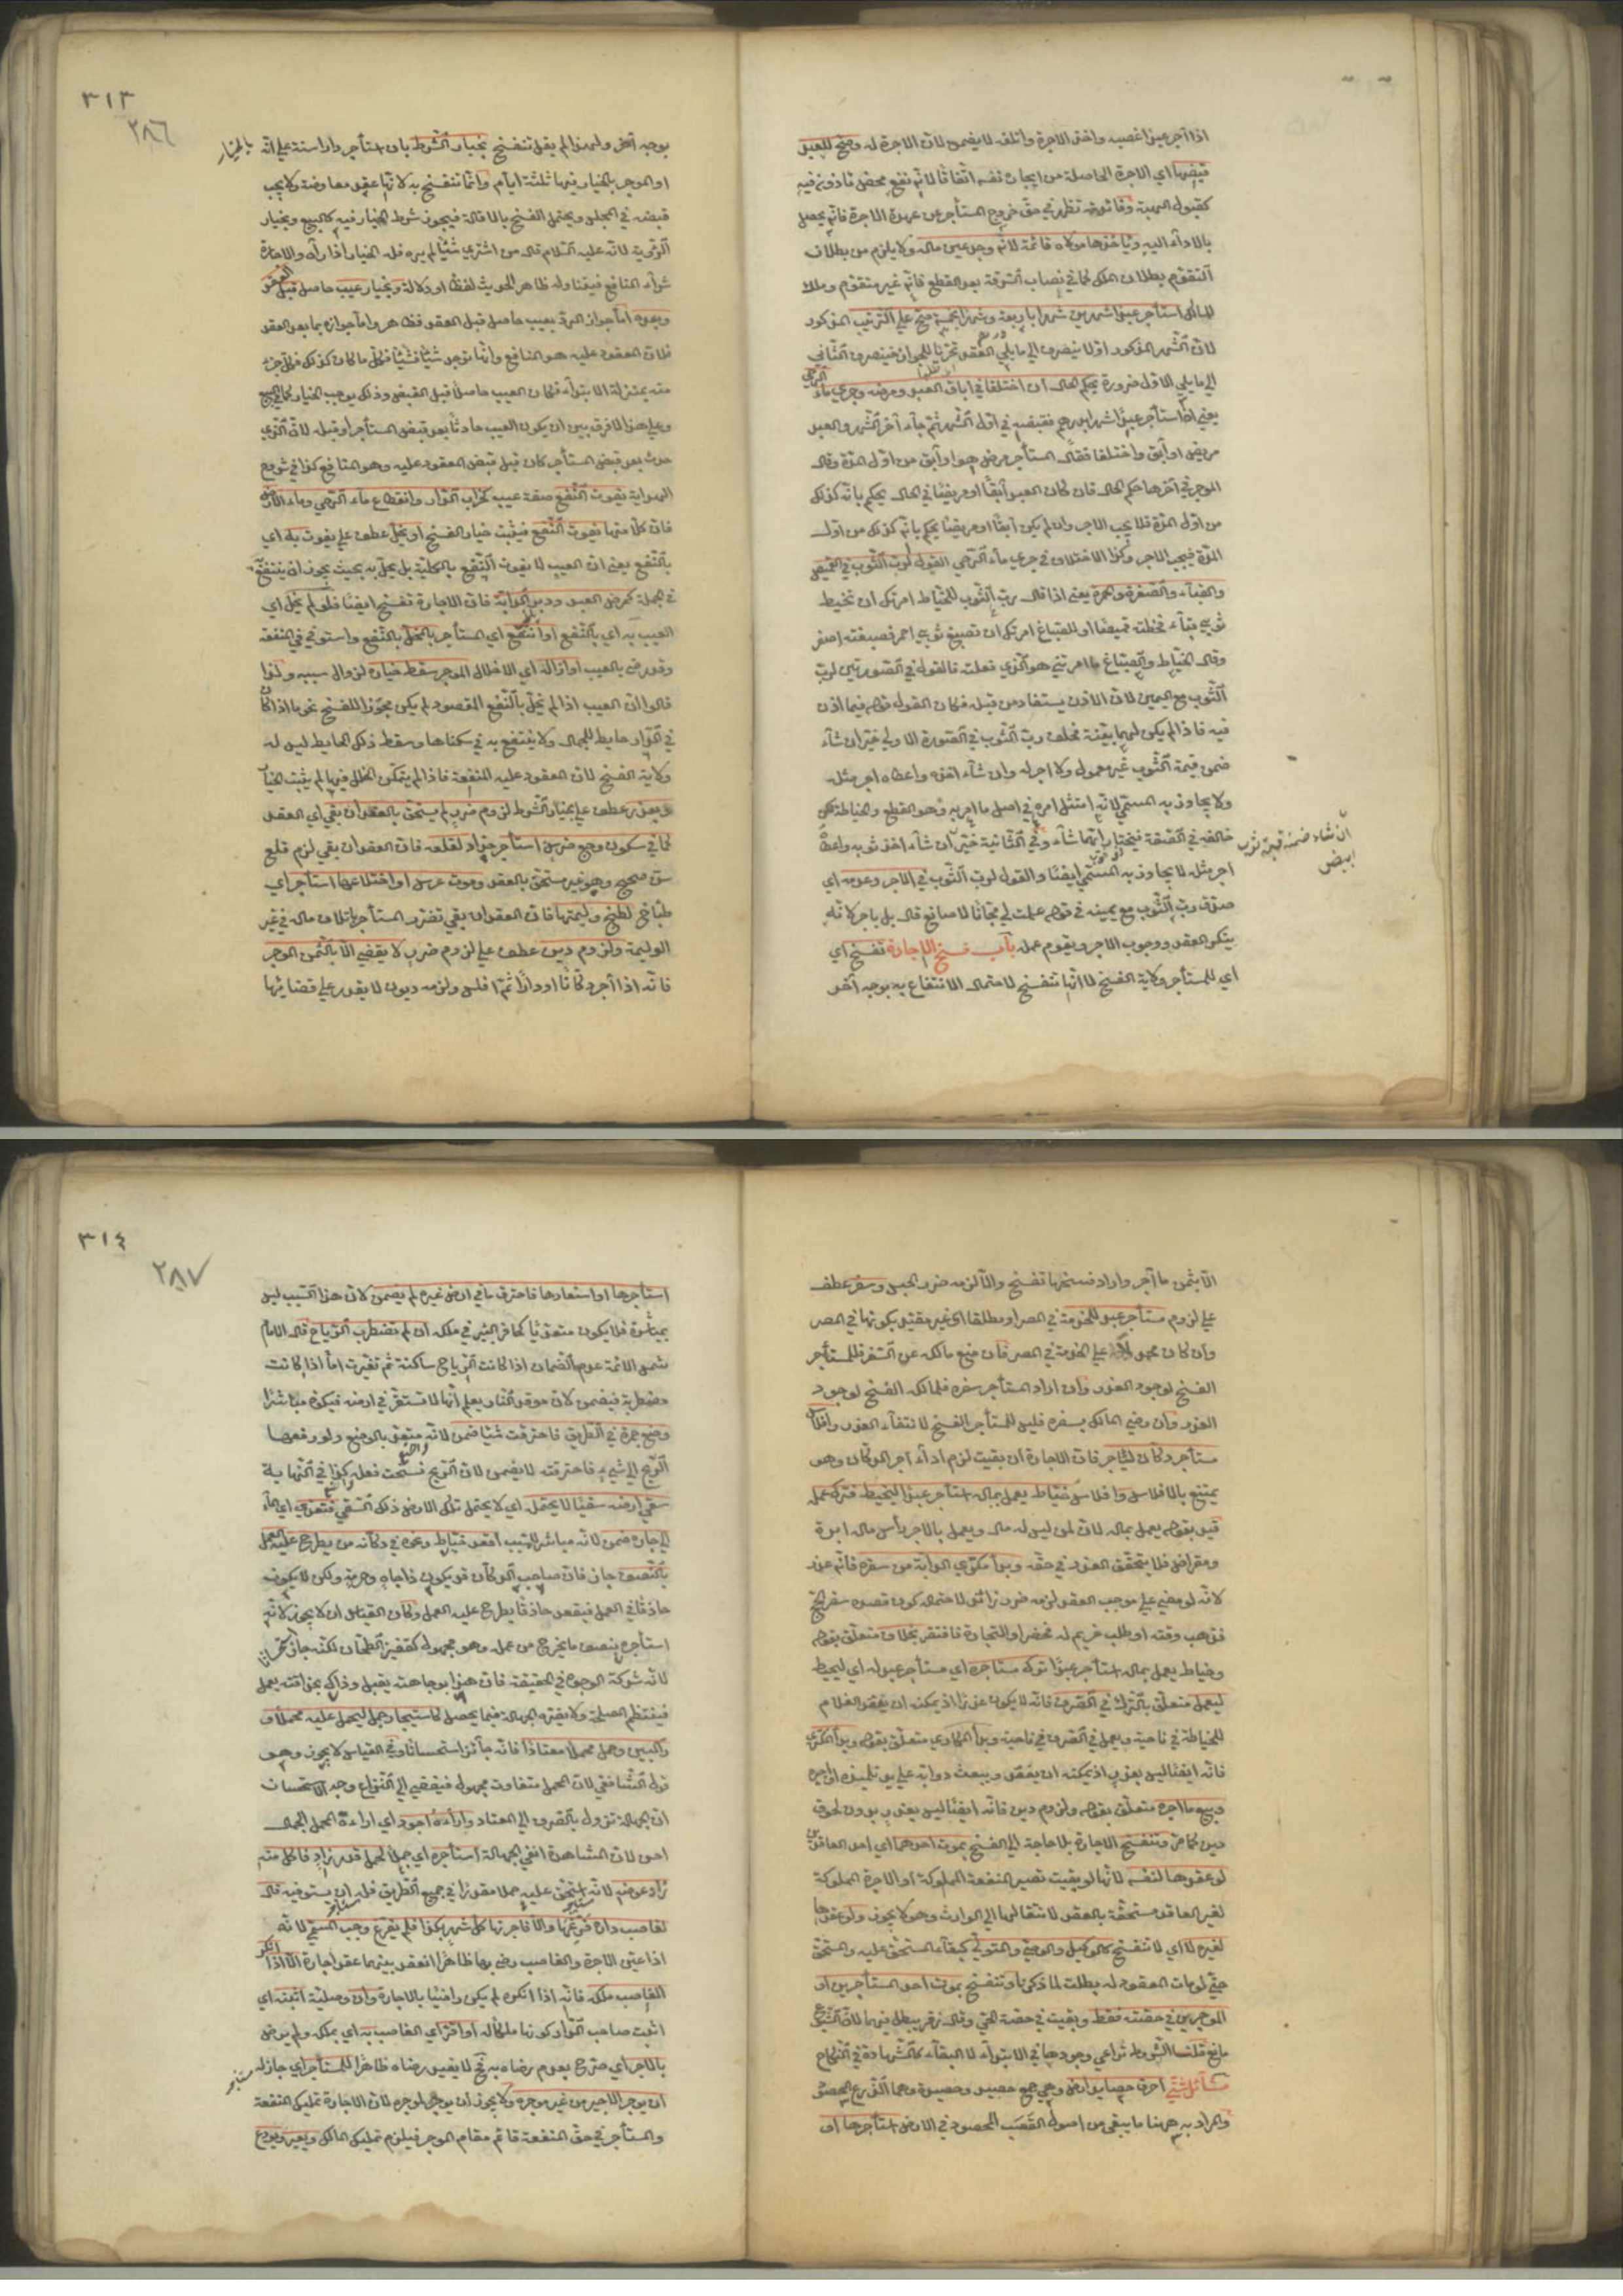 اذا آجر عبدا غصبه واخذ الاجرة واتلفه لا يضمن لان الاجرة له وصح للعبد
قبضها اي الاجرة الحاصلة من ايجار نفسه اتفاقا لانه نفع محض ماذون فيه
كقبول الهبة وفائدته تظهر في حق خروج المستأجر عن عهدة الاجرة فانه يحصل
بالاداء اليه ويأخذها مولاه قائمة لانه وجد عين ماله ولا يلزم من بطلان
التقوم بطلان الملك كما في نصاب السرقة بعد القطع فانه غير متقوم وملك
للمالك استأجر عبدا شهرين شهرا باربعة وشهرا بخمسة صح على الترتيب المذكور
لان الشهر المذكور اولا ينصرف الى ما يلي العقد تحريا للجواز فينصرف الثاني
الى ما يلي الاول ضرورة يحكم الحال ان اختلفا في اباق العبد ومرضه وجري ماء الرحى
يعني اذا استأجر عبدا شهرا بدرهم فقبضه في اول الشهر ثم جاء آخر الشهر والعبد
مريض او آبق واختلفا فقال المستأجر مرض هو او آبق من اول المدة وقال
الموجر في آخرها حكم الحال فان كان العبد آبقا او مريضا في الحال يحكم بانه كذلك
من اول المدة فلا يجب الاجر وان لم يكن آبقا او مريضا يحكم بانه كذلك من اول
المدة فيجب الاجر وكذا الاختلاف في جري ماء الرحى القول لرب الثوب في القميص
والقباء والصفرة والحمرة يعني اذا قال رب الثوب للخياط امرتك ان تخيط
ثوبي قباء فخطته قميصا او للصباغ امرتك ان تصبغ ثوبي احمر فصبغته اصفر
وقال الخياط والصباغ ما امرتني هو الذي فعلت فالقول في الصورتين لرب
الثوب مع اليمين لان الاذن يستفاد من قبله فكان القول قوله فيما اذن
فيه فاذا لم يكن لهما بينة فحلف رب الثوب في الصورة الاولى خير ان شاء
ضمن قيمة الثوب غير معمول ولا اجر له وان شاء اخذه واعطاه اجر مثله
ولا يجاوز به المسمى لانه امتثل امره في اصل ما امر به وهو القطع والخياطة لكن
خالفه في الصفة فيختار ايهما شاء وفي الثانية خير ان شاء اخذ ثوبه واعطاه
ان شاء ضمنه قيمة ثوب
ابيض
اجر مثله لا يجاوز به المسمى ايضا والقول لرب الثوب في الاجر وعدمه اي
صدق رب الثوب مع يمينه في قوله عملت لي مجانا لا صانع قال بل باجر لانه
ينكر العقد ووجوب الاجر وتقوم عمله باب فسخ الاجارة تفسخ اي
اي للمستأجر ولاية الفسخ لا انها تنفسخ لاحتمال الانتفاع به بوجه آخر
٣١٣
٢٨٦
بوجه آخر ولهذا لم يقل تنفسخ بخيار الشرط بان استأجر دارا سنة على انه
بالخيار
او الموجر بالخيار فيها ثلثة ايام وانما تنفسخ به لانها عقد معاوضة ولا يجب
قبضه في المجلس ويحتمل الفسخ بالاقالة فيجوز شرط الخيار فيه كالبيع وبخيار
الرؤية لانه عليه السلام قال من اشترى شيئا لم يره فله الخيار اذا رآه والاجارة
شراء المنافع فيتناوله ظاهر الحديث لفظا او دلالة وبخيار عيب حاصل قبل العقد
وبعده اما جواز الرد بعيب حاصل قبل العقد فظاهر واما جوازه بما بعد العقد
فلان المعقود عليه هو المنافع وانها توجد شيئا فشيئا فكل ما كان كذلك فكل جزء
منه بمنزلة الابتداء فكان العيب حاصلا قبل القبض وذلك يوجب الخيار كما في البيع
وعلى هذا لا فرق بين ان يكون العيب حادثا بعد قبض المستأجر او قبله لان الذي
حدث بعد قبض المستأجر كان قبل قبض المعقود عليه وهو المنافع كذا في شروح
الهداية يفوت النفع صفة عيب كخراب الدار وانقطاع ماء الرحى وماء الارض
فان كلا منها يفوت النفع فيثبت خيار الفسخ او يخل عطف على يفوت به اي
بالنفع يعني ان العيب لا يفوت النفع بالكلية بل يخل به بحيث يجوز ان ينتفع
في الجملة كمرض العبد ودبر الدابة فان الاجارة تفسخ ايضا فلو لم يخل اي
العيب به اي بالنفع او انتفع اي المستأجر بالمخل بالنفع واستوفى المنفعة
وقد رضي بالعيب او ازاله اي الاخلال الموجر سقط خياره لزوال سببه ولذا
قالوا ان العيب اذا لم يخل بالنفع المقصود لم يكن مجوزا للفسخ نحو ما اذا كان
في الدار حايط للجمال ولا ينتفع به في سكناها وسقط ذلك الحايط ليس له
ولاية الفسخ لان المعقود عليه المنفعة فاذا لم يتمكن الخلل فيها لم يثبت الخيار
وبعذر عطف على بخيار الشرط لزوم ضرر لم يستحق بالعقد ان بقي اي العقد
كما في سكون وجع ضرس استأجر حدادا لقلعه فان العقد ان بقي لزم قلع
سن صحيح وهو غير مستحق بالعقد وموت عرس او اختلاعها استأجر اي
طباخ لطبخ وليمتها فان العقد ان بقي تضرر المستأجر باتلاف ماله في غير
الوليمة ولزوم دين عطف على لزوم ضرر لا يقضى الا بثمن الموجر
فانه اذا آجر دكانا او دارا ثم افلس ولزمه ديون لا يقدر على قضائها
الا بثمن ما آجر واراد فسخها تفسخ والا لزمه ضرر الحبس وسفر عطف
على لزوم مستأجر عبد للخدمة في المصر او مطلقا اي غير مقيد بكونها في المصر
وان كان محمولا على الخدمة في المصر فان منع مالكه عن السفر فللمستأجر
الفسخ لوجود العذر وان اراد المستأجر سفره فلمالكه الفسخ لوجود
العذر وان رضي المالك بسفره فليس للمستأجر الفسخ لانتفاء العذر وافلاس
مستأجر دكان ليتجر فان الاجارة ان بقيت لزم اداء اجر الدكان وهو
يمتنع بالافلاس وافلاس خياط يعمل بماله استأجر عبدا ليخيط فترك عمله
قيد بقوله يعمل بماله لان من ليس له مال ويعمل بالاجر رأس ماله ابرة
ومقراض فلا يتحقق العذر في حقه وبدا مكتري الدابة من سفره فانه عذر
لانه لو مضى على موجب العقد لزمه ضرر زائد لاحتمال كون قصده سفر الحج
فذهب وقته او طلب غريم له فحضر او التجارة فافتقر بخلاف متعلق بقوله
وخياط يعمل بماله استأجر عبدا ترك مستأجره اي مستأجر عبد له اي ليخيط
ليعمل متعلق بالترك في الصرف فانه لا يكون عذرا اذ يمكنه ان يقعد الغلام
للخياطة في ناحية ويعمل في الصرف في ناحية وبدا المكاري متعلق بقوله وبدا المكتري
فانه ايضا ليس بعذر اذ يمكنه ان يقعد ويبعث دوابه على يد تلميذه او اجيره
وبيع ما آجره متعلق بقوله ولزوم دين فانه ايضا ليس بعذر بدون لحوق
دين كما مر وتنفسخ الاجارة بلا حاجة الى الفسخ بموت احدهما اي احد العاقدين
لو عقدها لنفسه لانها لو بقيت تصير المنفعة المملوكة او الاجرة المملوكة
لغير العاقد مستحقة بالعقد لانتقالها الى الوارث وهو لا يجوز ولو عقدها
لغيره لا اي لا تنفسخ كالوكيل والوصي والمتولي لبقاء المستحق عليه والمستحق
حتى لو مات المعقود له بطلت لما ذكرنا وتنفسخ بموت احد المستأجرين او
الموجرين في حصته فقط وبقيت في حصة الحي وقال زفر يبطل فيهما لان الشيوع
مانع قلنا الشروط تراعى وجودها في الابتداء لا البقاء كالشهادة في النكاح
مسائل شتى احرق حصايد ارض وهي جمع حصيد وحصيدة وهما الزرع المحصود
والمراد به ههنا ما يبقى من اصول القصب المحصود في الارض استأجرها او
٣١٤
٢٨٧
استأجرها او استعارها فاحترق ما في ارض غيره لم يضمن لان هذا التسبيب ليس
بمباشرة فلا يكون متعديا كحافر البئر في ملكه ان لم تضطرب الرياح قال الامام
شمس الائمة عدم الضمان اذا كانت الرياح ساكنة ثم تغيرت اما اذا كانت
مضطربة فيضمن لان موقد النار يعلم انها لا تستقر في ارضه فيكون مباشرا
وضع جمرة في الطريق فاحترقت شيئا ضمن لانه متعد بالوضع ولو رفعها
الريح الى شيء فاحترقته لا يضمن لان الريح نسخت فعله كذا في النهاية
سقى ارضه سقيا لا يحتمل اي لا يحتمل تلك الارض ذلك السقي فتعدى اي الماء
الى جاره ضمن لانه مباشر لا مسبب اقعد خياط ونحوه في دكانه من يطرح عليه العمل
بالنصف جاز فان صاحب الدكان قد يكون ذا جاه وحرمة ولكن لا يكون
حاذقا في العمل فيقعد حاذقا يطرح عليه العمل وكان القياس ان لا يجوز لانه
استأجره بنصف ما يخرج من عمله وهو مجهول كقفيز الطحان لكنه جاز استحسانا
لانه شركة الوجوه في الحقيقة فان هذا بوجاهته يقبل وذاك بحذاقته يعمل
فينتظم المصلحة ولا يضره الجهالة فيما يحصل كاستيجار جمل ليحمل عليه محملا و
راكبين وحمل محملا معتادا فانه جائز استحسانا وفي القياس لا يجوز وهو
قول الشافعي لان الحمل متفاوت مجهول فيفضي الى النزاع وجه الاستحسان
ان الجهالة تزول بالصرف الى المعتاد واراءته اجود اي اراءة الحمل الجمال
احق لان المشاهدة انفى للجهالة استأجره اي جملا لحمل قدر زاد فاكل منه
زاد عوضه لانه استحق عليه حملا مقدرا في جميع الطريق فله ان يستوفيه قال
لغاصب داره فرغها والا فاجرتها كل شهر بكذا فلم يفرغ وجب المسمى لانه
اذا عين الاجرة والغاصب رضي بها ظاهرا انعقد بينهما عقد اجارة الا اذا انكر
الغاصب ملكه فانه اذا انكره لم يكن راضيا بالاجارة وان وصلية اثبته اي
اثبت صاحب الدار كونها ملكا له او اقر اي الغاصب به اي بملكه ولم يرض
بالاجر اي صرح بعدم رضاه به لا يفيد رضاه ظاهرا للمستأجر اي جاز له
ان يوجر الاجير من غير موجره ولا يجوز ان يوجر لموجره لان الاجارة تمليك المنفعة
والمستأجر في حق المنفعة قائم مقام الموجر فيلزم تمليك المالك ويعير ويودع